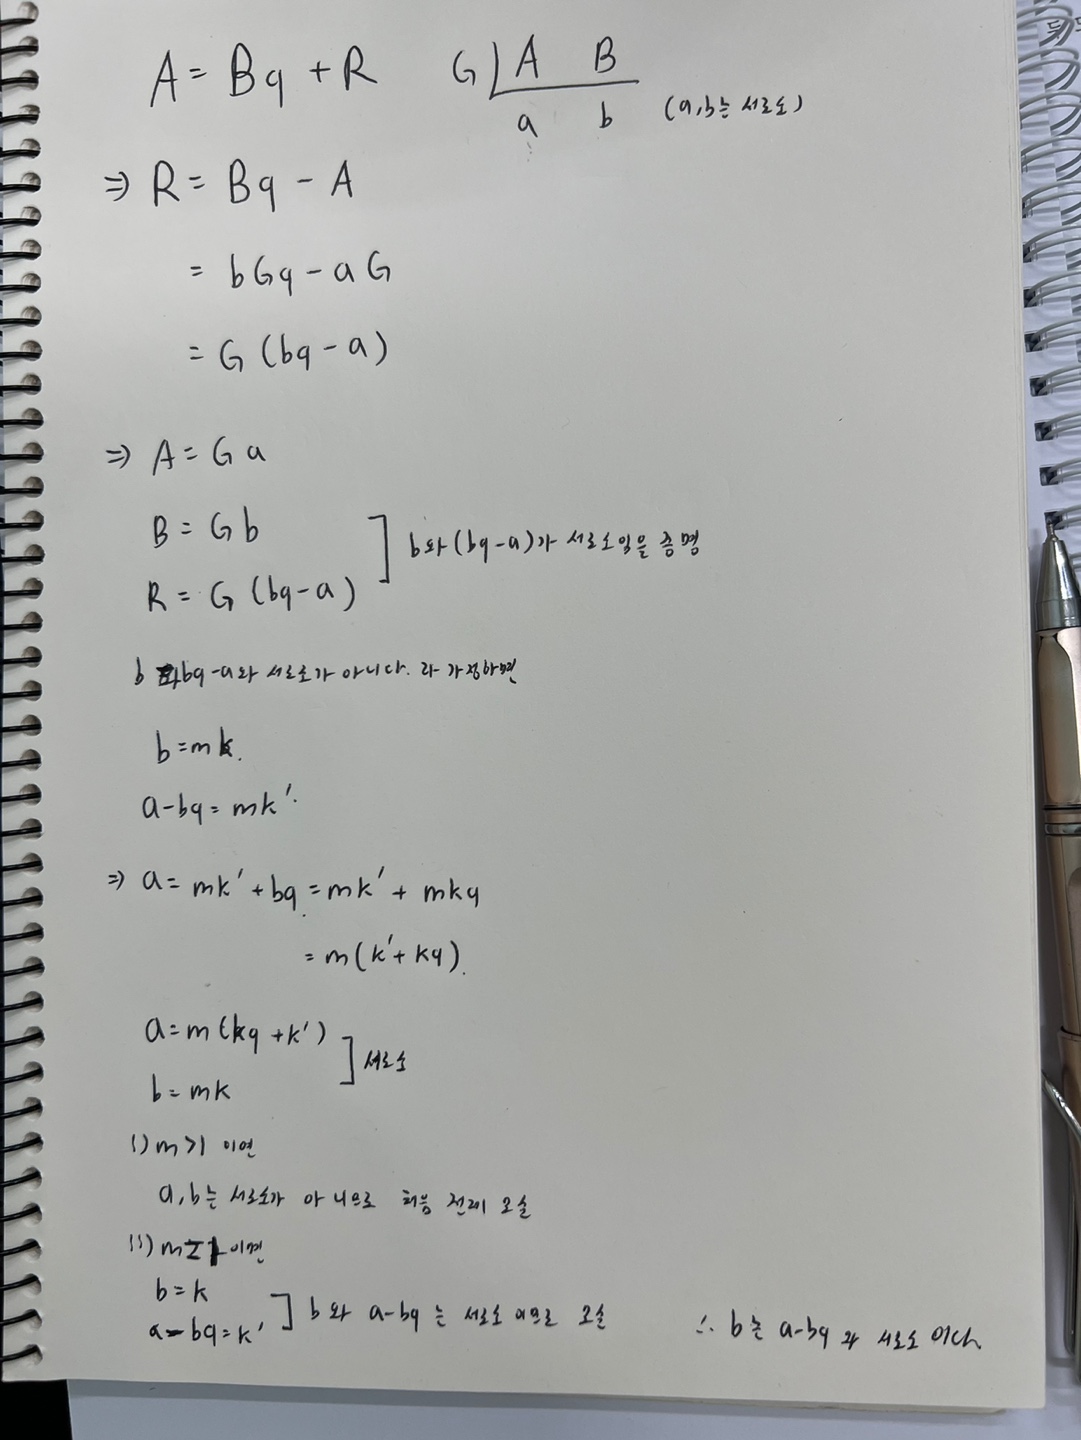 A = Bq + R G A B
a b (a,b는 서로소)
⇒ R = Bq - A
= bGq - aG
= G (bq - a)
⇒ A = G a
B = G b
R = G (bq - a)
b와 (bq-a)가 서로소임을 증명
b bq-a와 서로소가 아니다. 라 가정하면
b = mk.
a - bq = mk'.
⇒ a = mk' + bq = mk' + mkq
= m(k' + kq).
a = m (kq + k')
b = mk
서로소
i) m > 1 이면
a, b는 서로소가 아니므로 처음 전제 모순
ii) m = 1 이면
b = k
a - bq = k'
b와 a-bq는 서로소 이므로 모순
∴ b는 a-bq와 서로소 이다